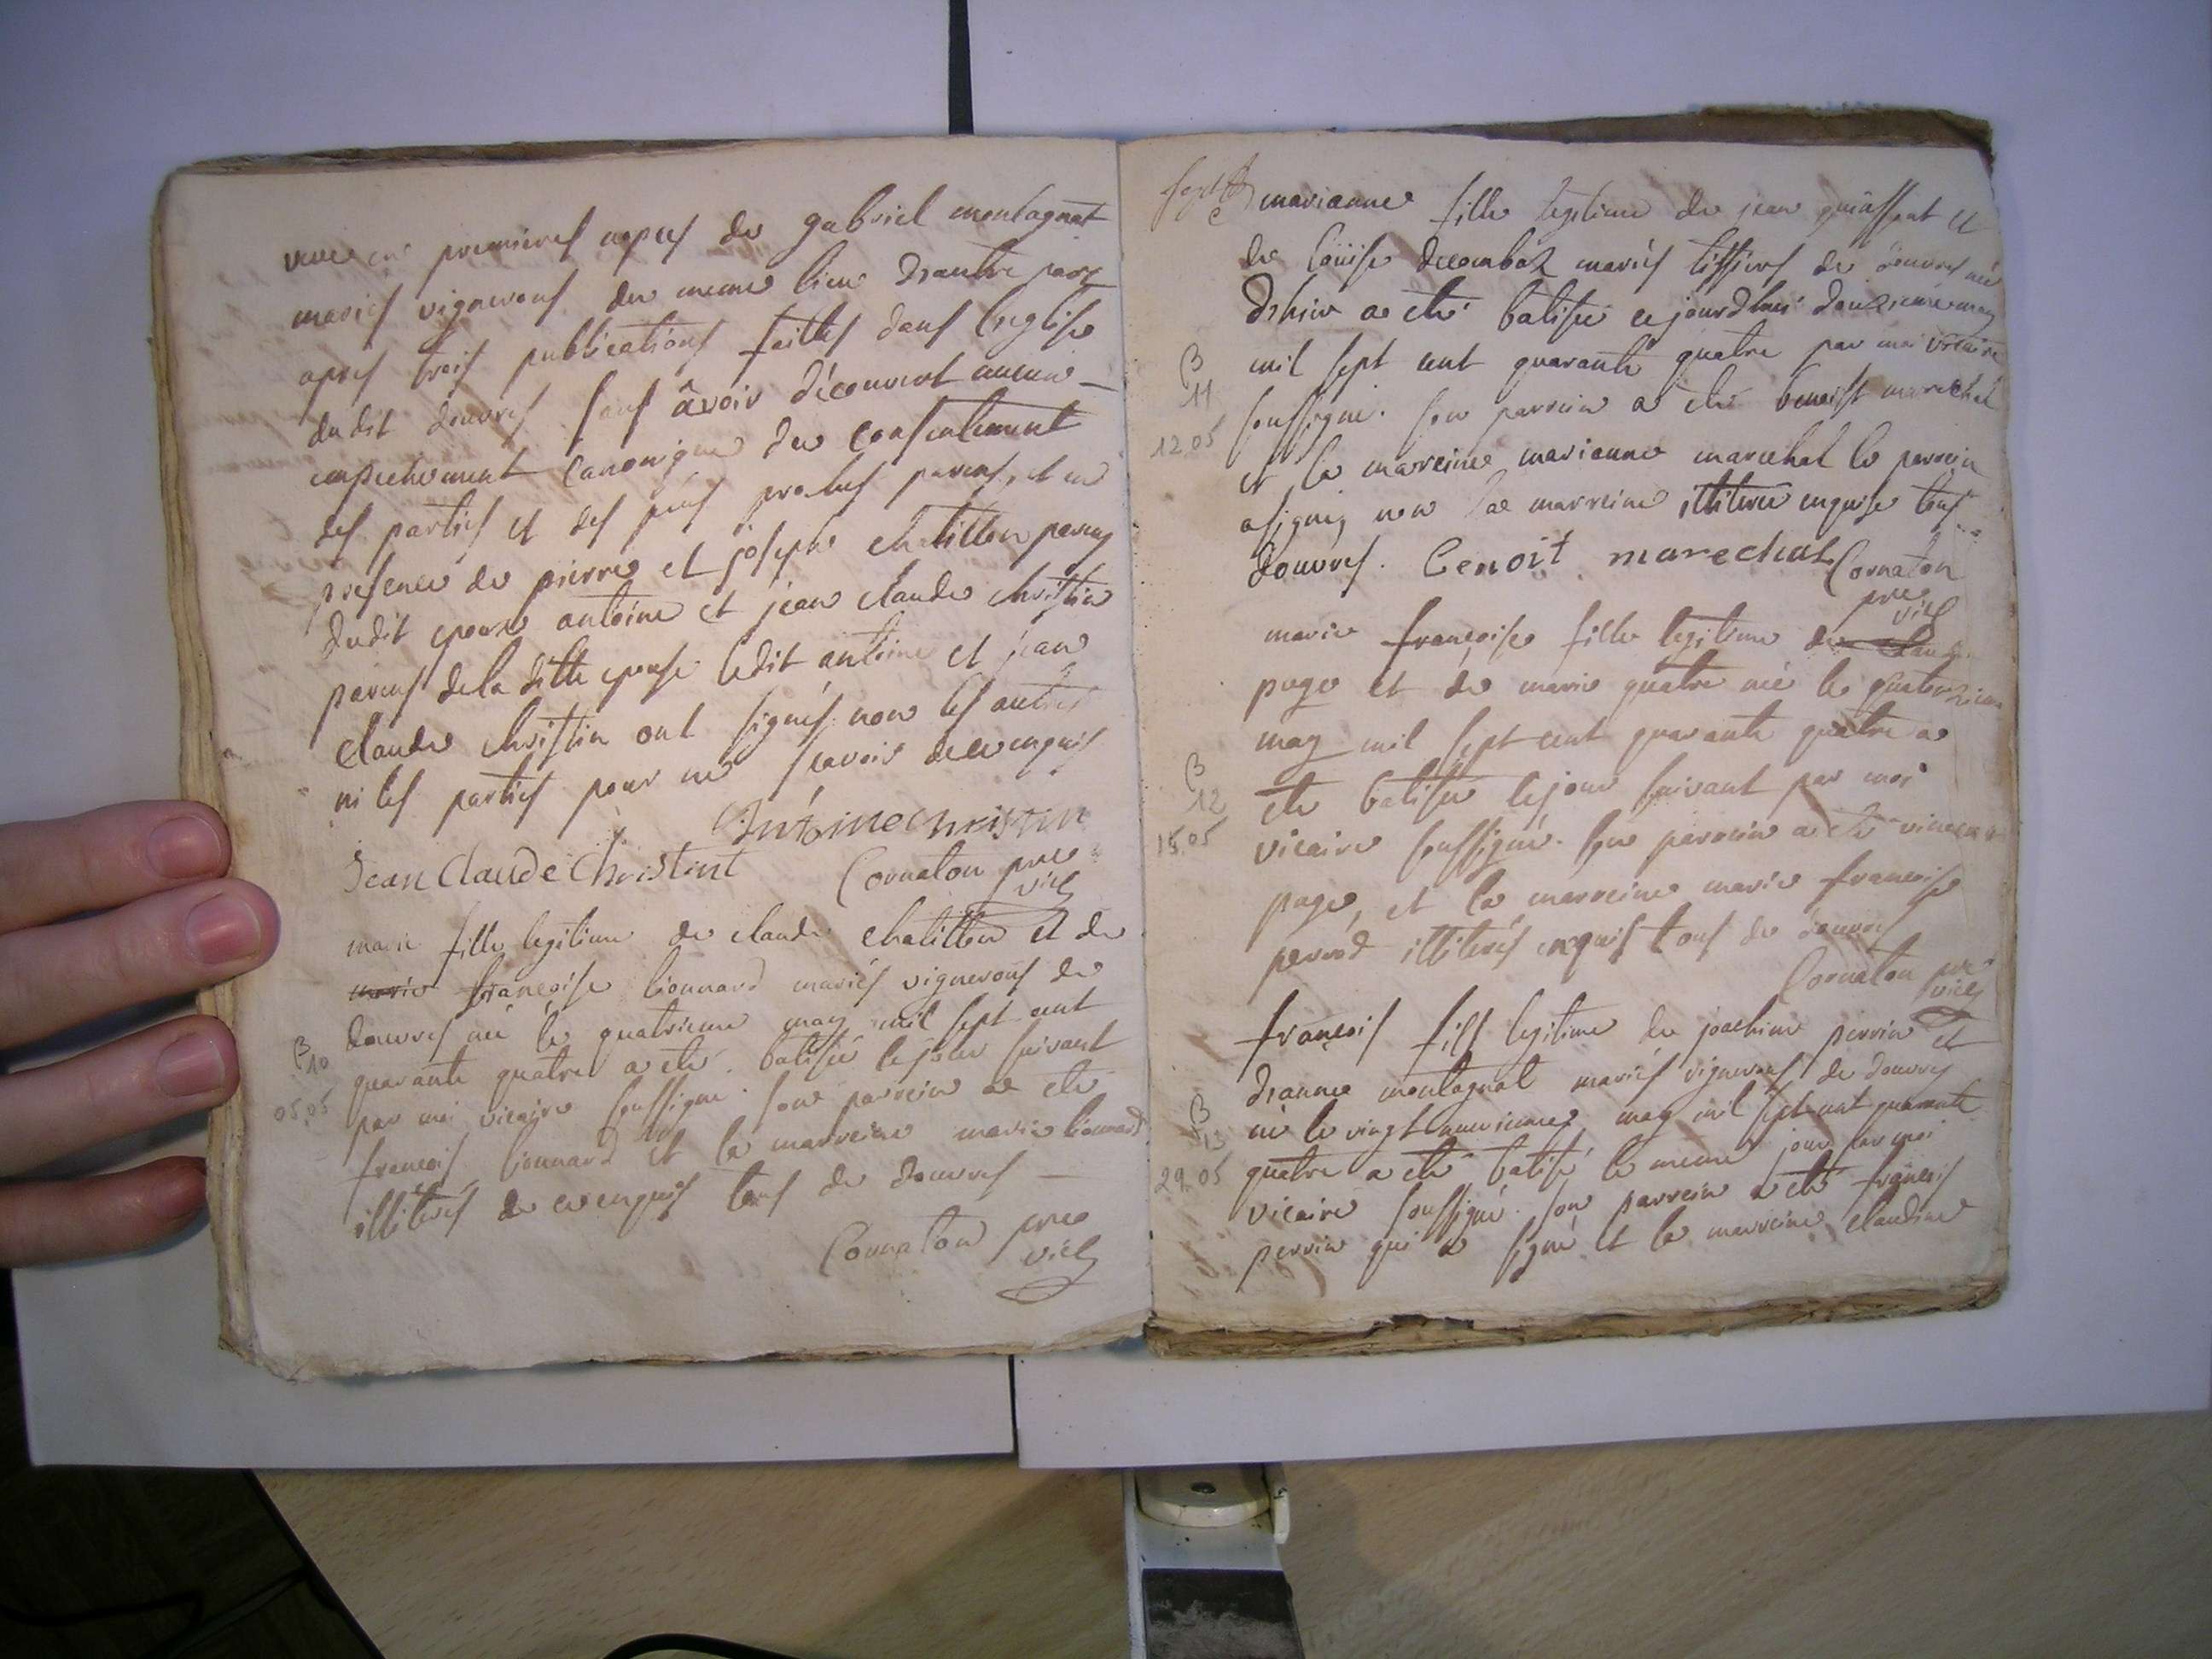 veuve en premieres nopces de gabriel montagnat
mariés vignerons du meme lieu d'autre part
apres trois publications faittes dans l'eglise
dudit douvres sans avoir découvert aucun
empechement canonique du consentement
des parties et des plus proches parens, et en
presence de pierre et joseph chatillon parens
dudit epoux antoine et jean claude christin
parens de la ditte epouse ledit antoine et jean
claude christin ont signés non les autres
ni les parties pour ne scavoir de ce enquis
Antoine christin
Jean Claude Christint Cornaton pre
vic
marie fille legitime de claude chatillon et de
marie françoise lionnard mariés vignerons de
douvres née le quatrieme may mil sept cent
B 10
quarante quatre a eté batisée le jour suivant
05.05
par moi vicaire soussigné. son parrein a eté
françois lionnard et la marreine marie lionnard
illiterés de ce enquis tous de douvres
Cornaton pre
vic
marianne fille legitime de jean et
de loüise decombaz mariés tissiers de douvres née
d'hier a eté batisée ce jourd'hui douzieme may
B
mil sept cent quarante quatre par moi vicaire
11
soussigné. son parrein a eté benoist marechal
12 05
et la marreine marianne marechal le parrein
a signé, non la marreine illiterée enquise tous
douvres. Benoit marechal Cornaton
pre
vic
marie françoise fille legitime de claude
page et de marie quatre née le quatorzieme
may mil sept cent quarante quatre a
B
eté batisée le jour suivant par moi
12
15.05
vicaire soussigné. son parrein a eté vincent
page, et la marreine marie françoise
perrod illiterés enquis tous de douvres
Cornaton pre
vic
françois fils legitime de joachim perrin et
d'anne montagnat mariés vignerons de douvres
B
né le vingt neuvieme may mil sept cent quarante
13
quatre a eté batisé le meme jour par moi
29.05
vicaire soussigné. son parrein a eté françois
perrin qui a signé et la marreine claudine